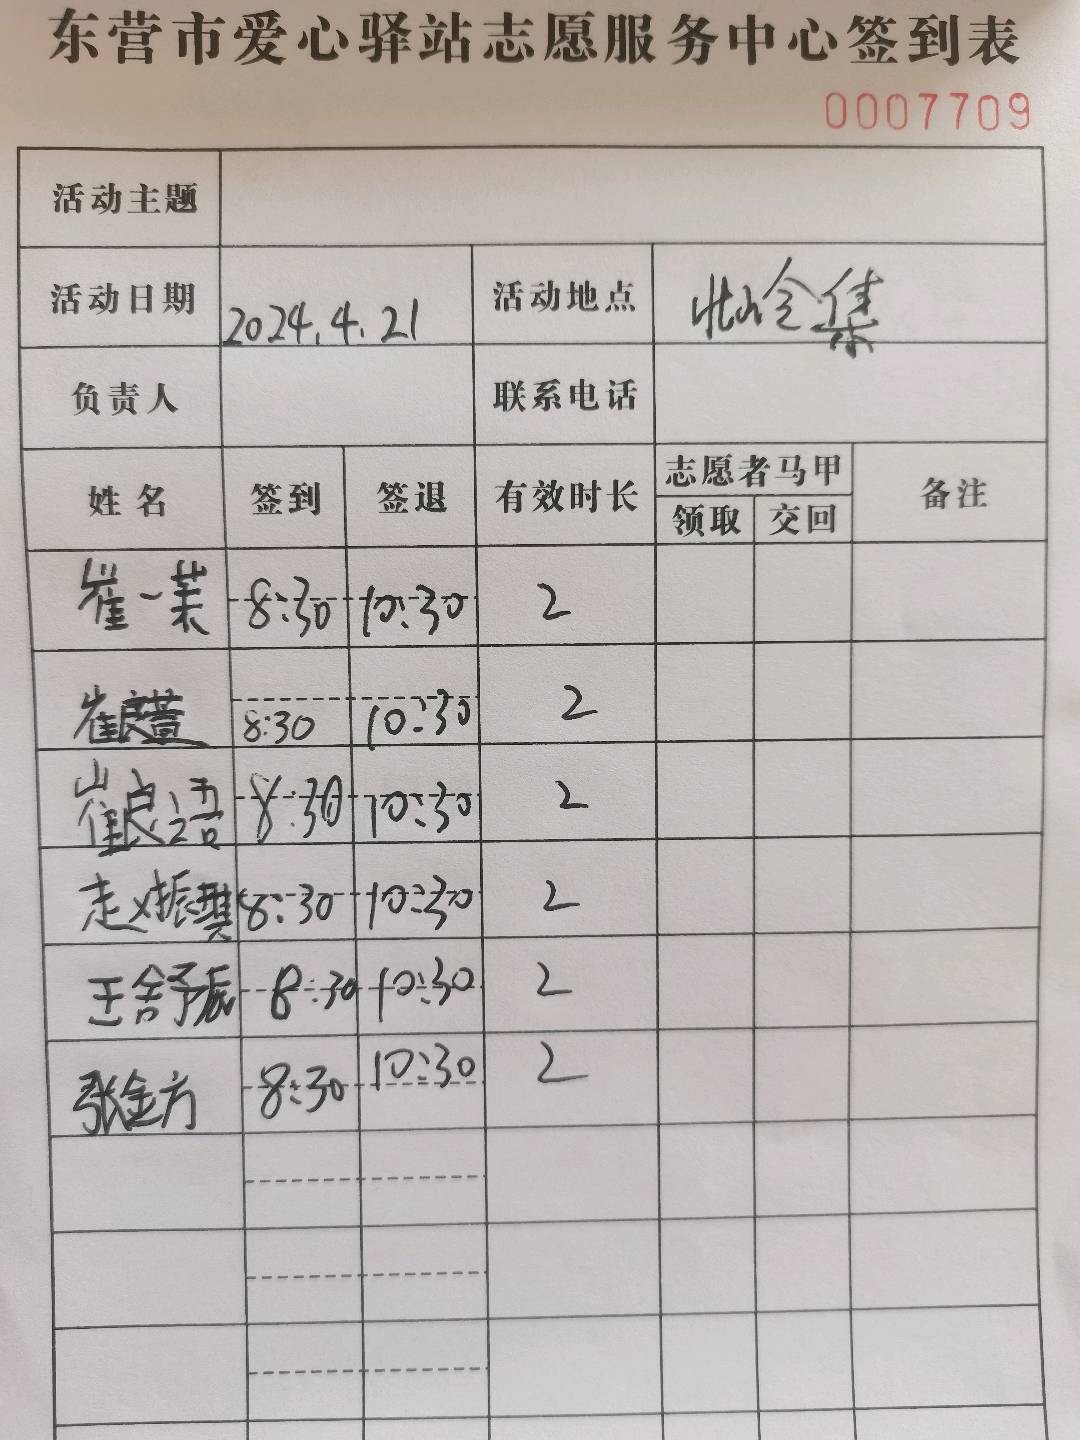 东营市爱心驿站志愿服务中心签到表
0007709
活动主题
活动日期 2024.4.21 活动地点 集
负责人 联系电话
姓名 签到 签退 有效时长 志愿者马甲 备注
领取 交回
崔一茉 8:30 10:30 2
崔良萱 8:30 10:30 2
崔良语 8:30 10:30 2
赵振 8:30 10:30 2
王舒 8:30 10:30 2
张金方 8:30 10:30 2